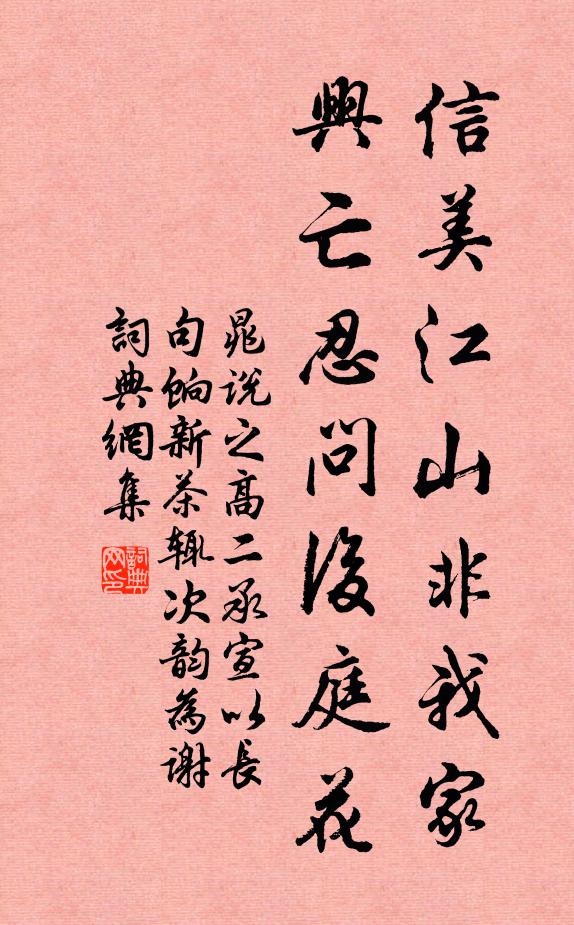 信美江山非我家
興亡忍問後庭花
晁说之高二承宣以長
句餉新茶辄次韵為谢
詞典網集
詞典网印